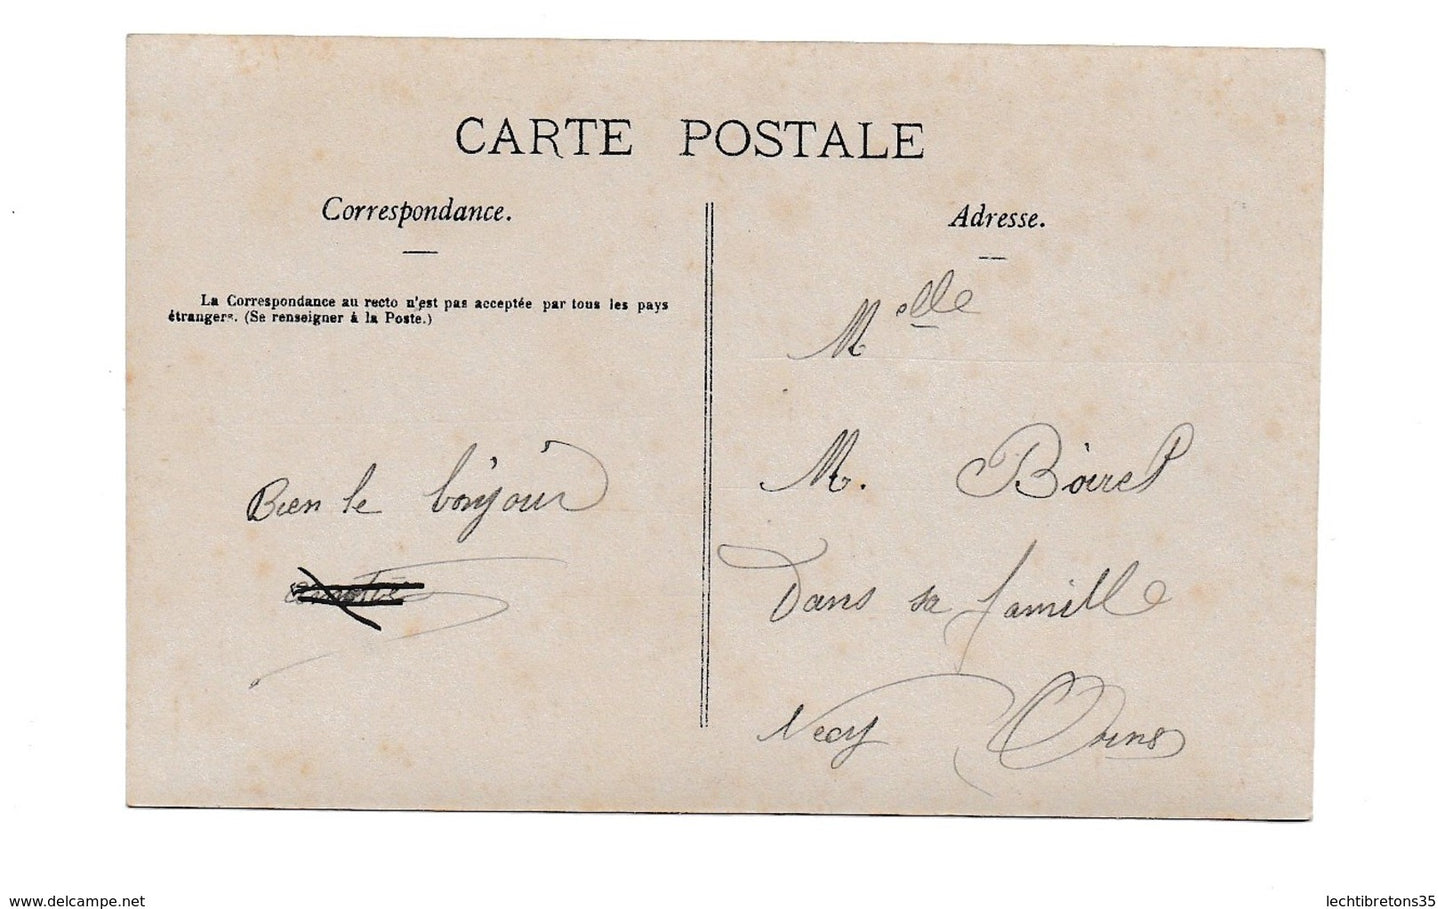 CARTE POSTALE
Correspondance.
La Correspondance au recto n'est pas acceptée par tous les pays
étrangers. (Se renseigner à la Poste.)
Bien le bonjour
Adresse.
Melle
M. Boirel
Dans sa famille
Necy Orne
www.delcampe.net
lechtibretons35